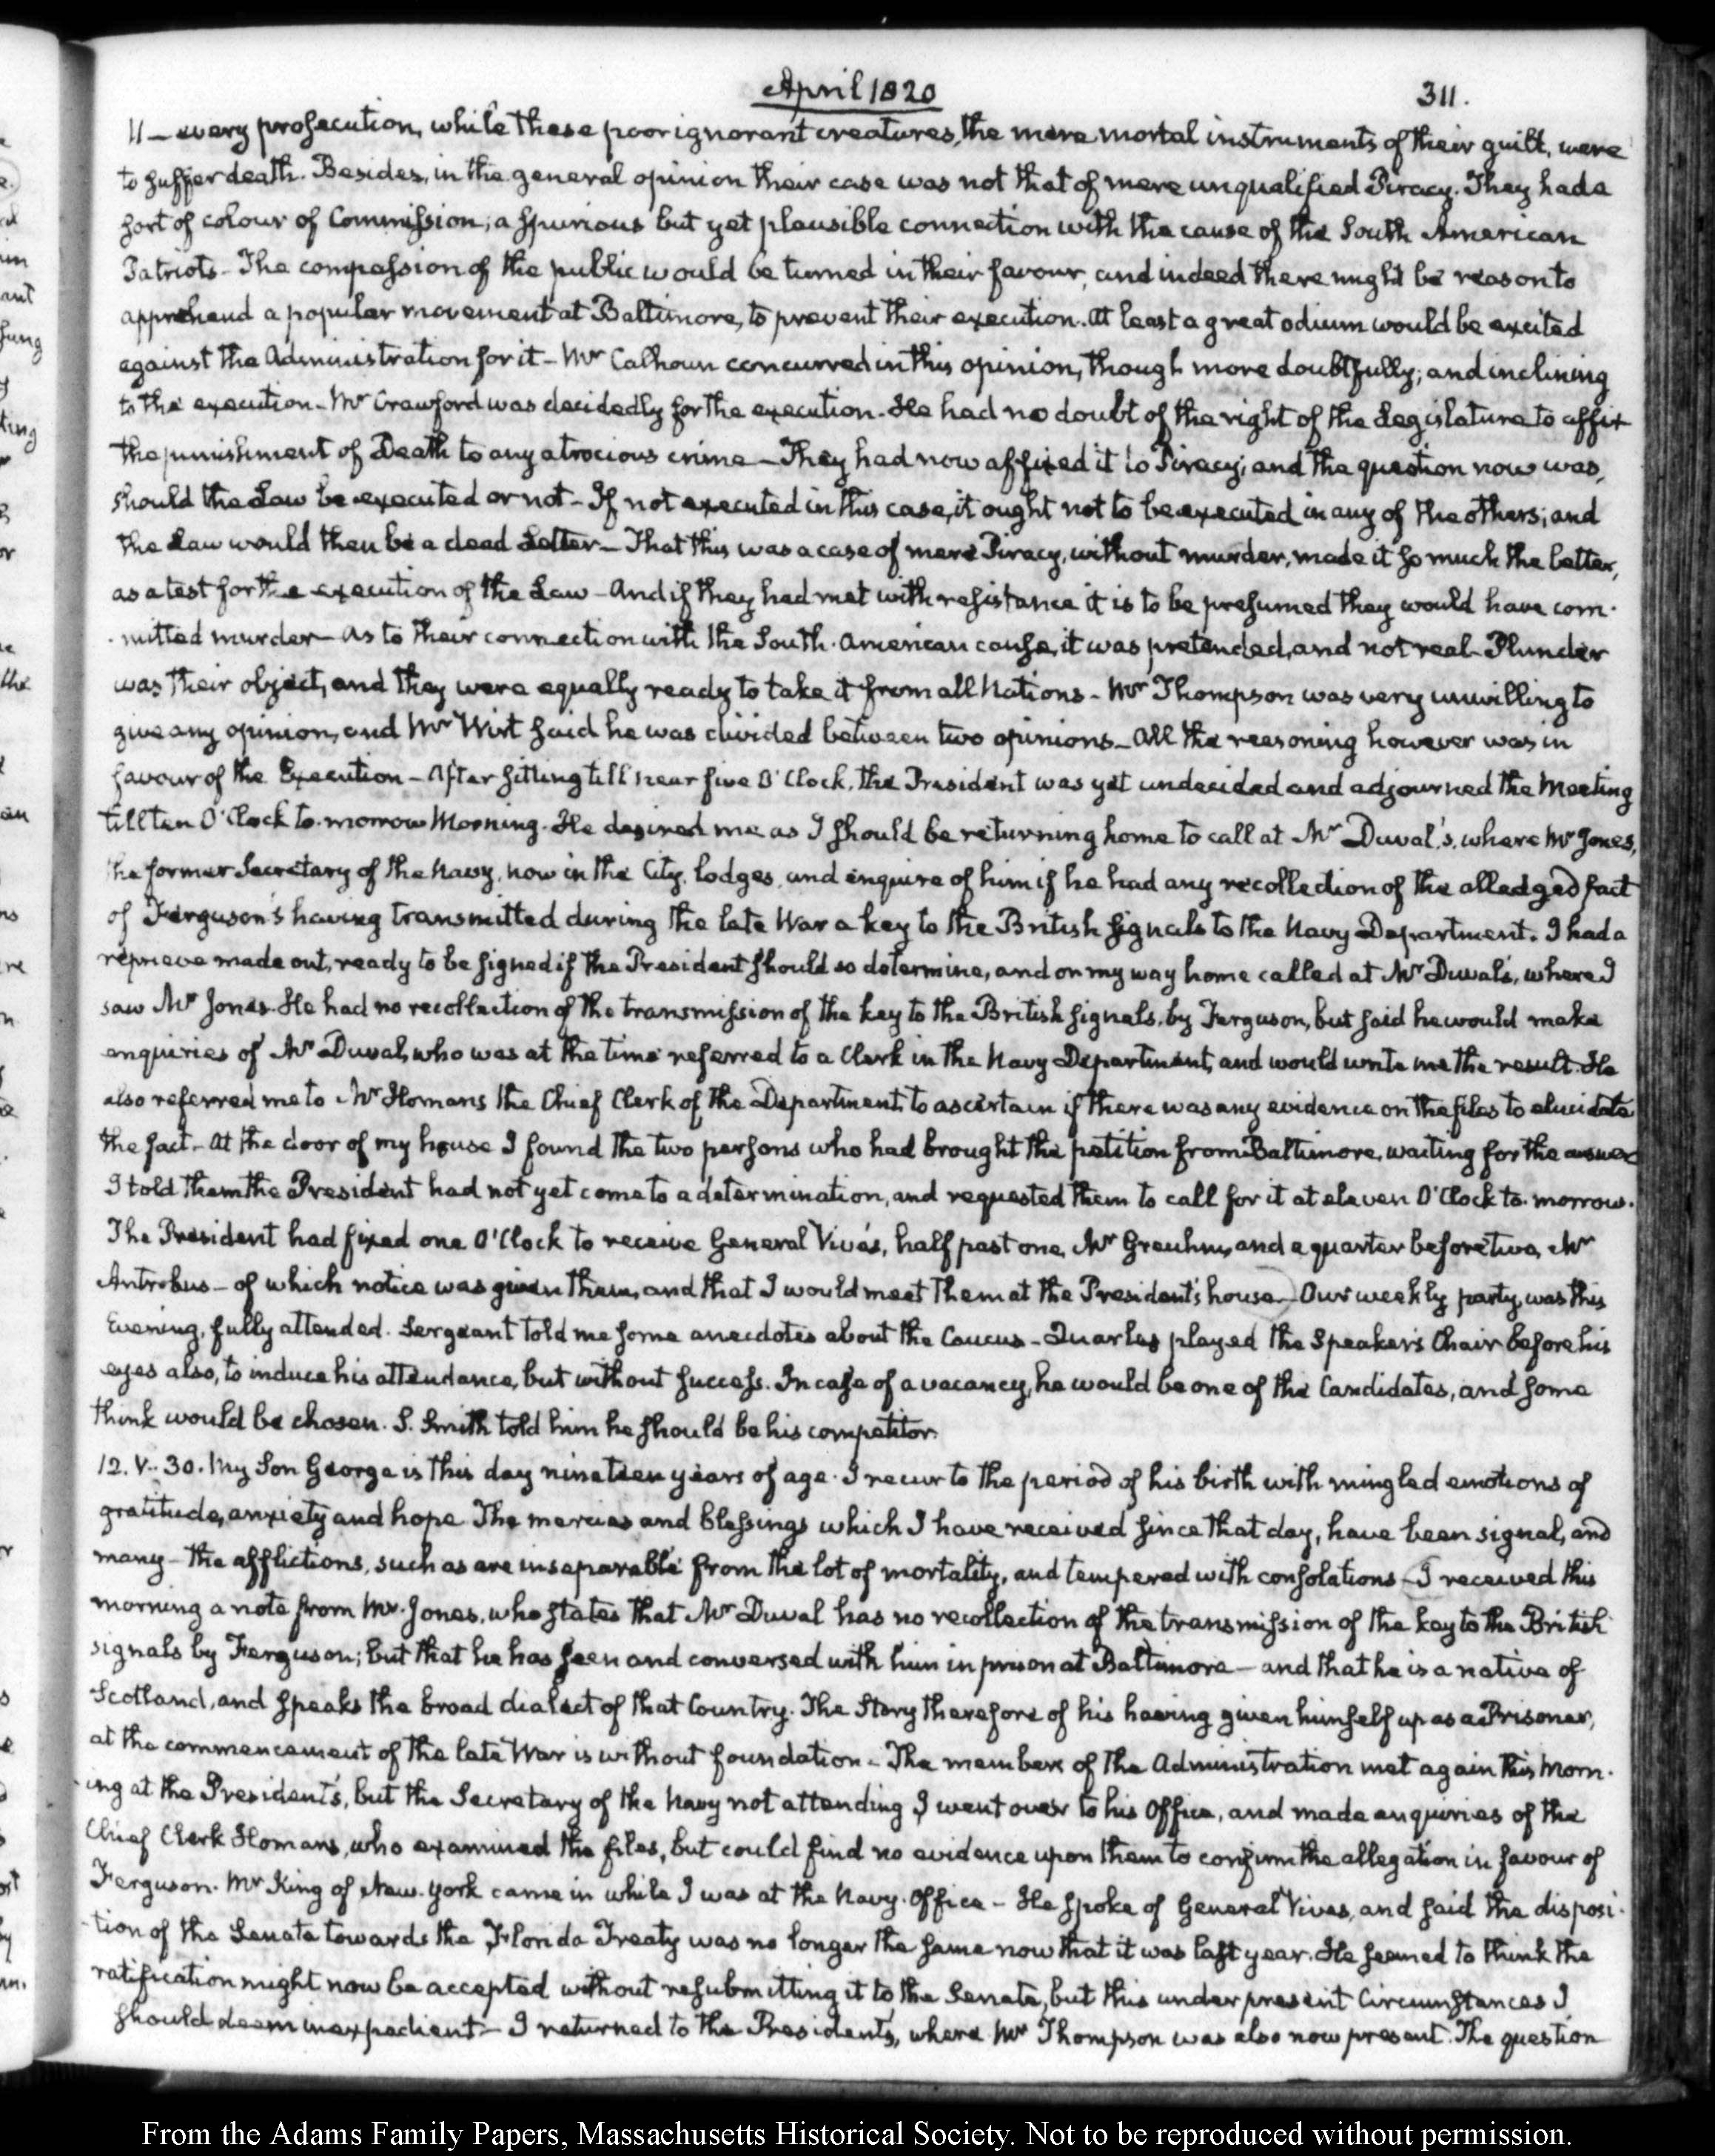 April 1820
311.
11 — every prosecution, while these poor ignorant creatures, the mere mortal instruments of their guilt, were
to suffer death. Besides, in the general opinion their case was not that of mere unqualified Piracy. They had a
sort of colour of Commission; a spurious but yet plausible connection with the cause of the South American
Patriots — The compassion of the public would be turned in their favour, and indeed there might be reason to
apprehend a popular movement at Baltimore, to prevent their execution. At least a great odium would be excited
against the Administration for it — Mr Calhoun concurred in this opinion, though more doubtfully; and inclining
to the execution — Mr Crawford was decidedly for the execution. He had no doubt of the right of the Legislature to affix
the punishment of Death to any atrocious crime — They had now affixed it to Piracy; and the question now was,
should the Law be executed or not — If not executed in this case, it ought not to be executed in any of the others; and
the Law would then be a dead Letter — That this was a case of mere Piracy, without murder, made it so much the better,
as a test for the execution of the Law — And if they had met with resistance it is to be presumed they would have com-
-mitted murder — As to their connection with the South-American cause, it was pretended, and not real — Plunder
was their object, and they were equally ready to take it from all Nations — Mr Thompson was very unwilling to
give any opinion, and Mr Wirt said he was divided between two opinions — All the reasoning however was in
favour of the Execution — After sitting till near five O'Clock, the President was yet undecided and adjourned the Meeting
till ten O'Clock to-morrow Morning. He desired me as I should be returning home to call at Mr Duval's, where Mr Jones,
the former Secretary of the Navy, now in the City, lodges, and enquire of him if he had any recollection of the alledged fact
of Ferguson's having transmitted during the late War a key to the British signals to the Navy Department. I had a
reprieve made out, ready to be signed if the President should so determine, and on my way home called at Mr Duval's, where I
saw Mr Jones. He had no recollection of the transmission of the key to the British signals, by Ferguson, but said he would make
enquiries of Mr Duval, who was at the time referred to a Clerk in the Navy Department, and would write me the result. He
also referred me to Mr Homans the Chief Clerk of the Department, to ascertain if there was any evidence on the files to elucidate
the fact — At the door of my house I found the two persons who had brought the petition from Baltimore, waiting for the answer
I told them the President had not yet come to a determination, and requested them to call for it at eleven O'Clock to-morrow.
The President had fixed one O'Clock to receive General Vivés, half past one, Mr Greuhm, and a quarter before two, Mr
Antrobus — of which notice was given them, and that I would meet them at the President's house — Our weekly party, was this
Evening, fully attended. Sergeant told me some anecdotes about the Caucus — Quarles played the Speaker's Chair before his
eyes also, to induce his attendance, but without success. In case of a vacancy, he would be one of the Candidates, and some
think would be chosen. S. Smith told him he should be his competitor.
12. V.. 30. My Son George is this day nineteen years of age. I recur to the period of his birth with mingled emotions of
gratitude, anxiety and hope. The mercies and blessings which I have received since that day, have been signal, and
many — the afflictions, such as are inseparable from the lot of mortality, and tempered with consolations — I received this
morning a note from Mr. Jones, who states that Mr Duval has no recollection of the transmission of the key to the British
signals by Ferguson; but that he has seen and conversed with him in prison at Baltimore — and that he is a native of
Scotland, and speaks the broad dialect of that Country. The Story therefore of his having given himself up as a Prisoner,
at the commencement of the late War is without foundation — The members of the Administration met again this Morn-
-ing at the President's, but the Secretary of the Navy not attending I went over to his Office, and made enquiries of the
Chief Clerk Homans, who examined the files, but could find no evidence upon them to confirm the allegation in favour of
Ferguson. Mr King of New-York came in while I was at the Navy-Office — He spoke of General Vives, and said the disposi-
-tion of the Senate towards the Florida Treaty was no longer the same now that it was last year. He seemed to think the
ratification might now be accepted without resubmitting it to the Senate, but this under present Circumstances I
should deem inexpedient — I returned to the President's, where Mr Thompson was also now present. The question
From the Adams Family Papers, Massachusetts Historical Society. Not to be reproduced without permission.